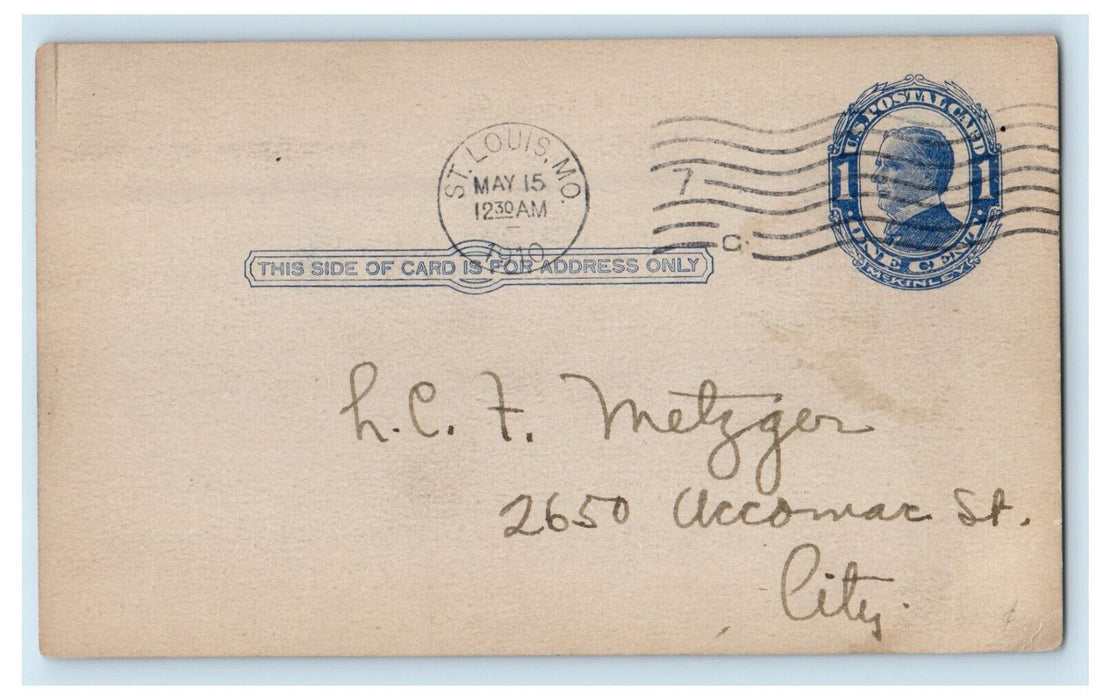 U.S. POSTAL CARD
1 1
ONE CENT
McKINLEY
ST. LOUIS, MO.
MAY 15
12 30 AM
1910
7
C
THIS SIDE OF CARD IS FOR ADDRESS ONLY
h. C. F. Metzger
2650 Accomac St.
City.